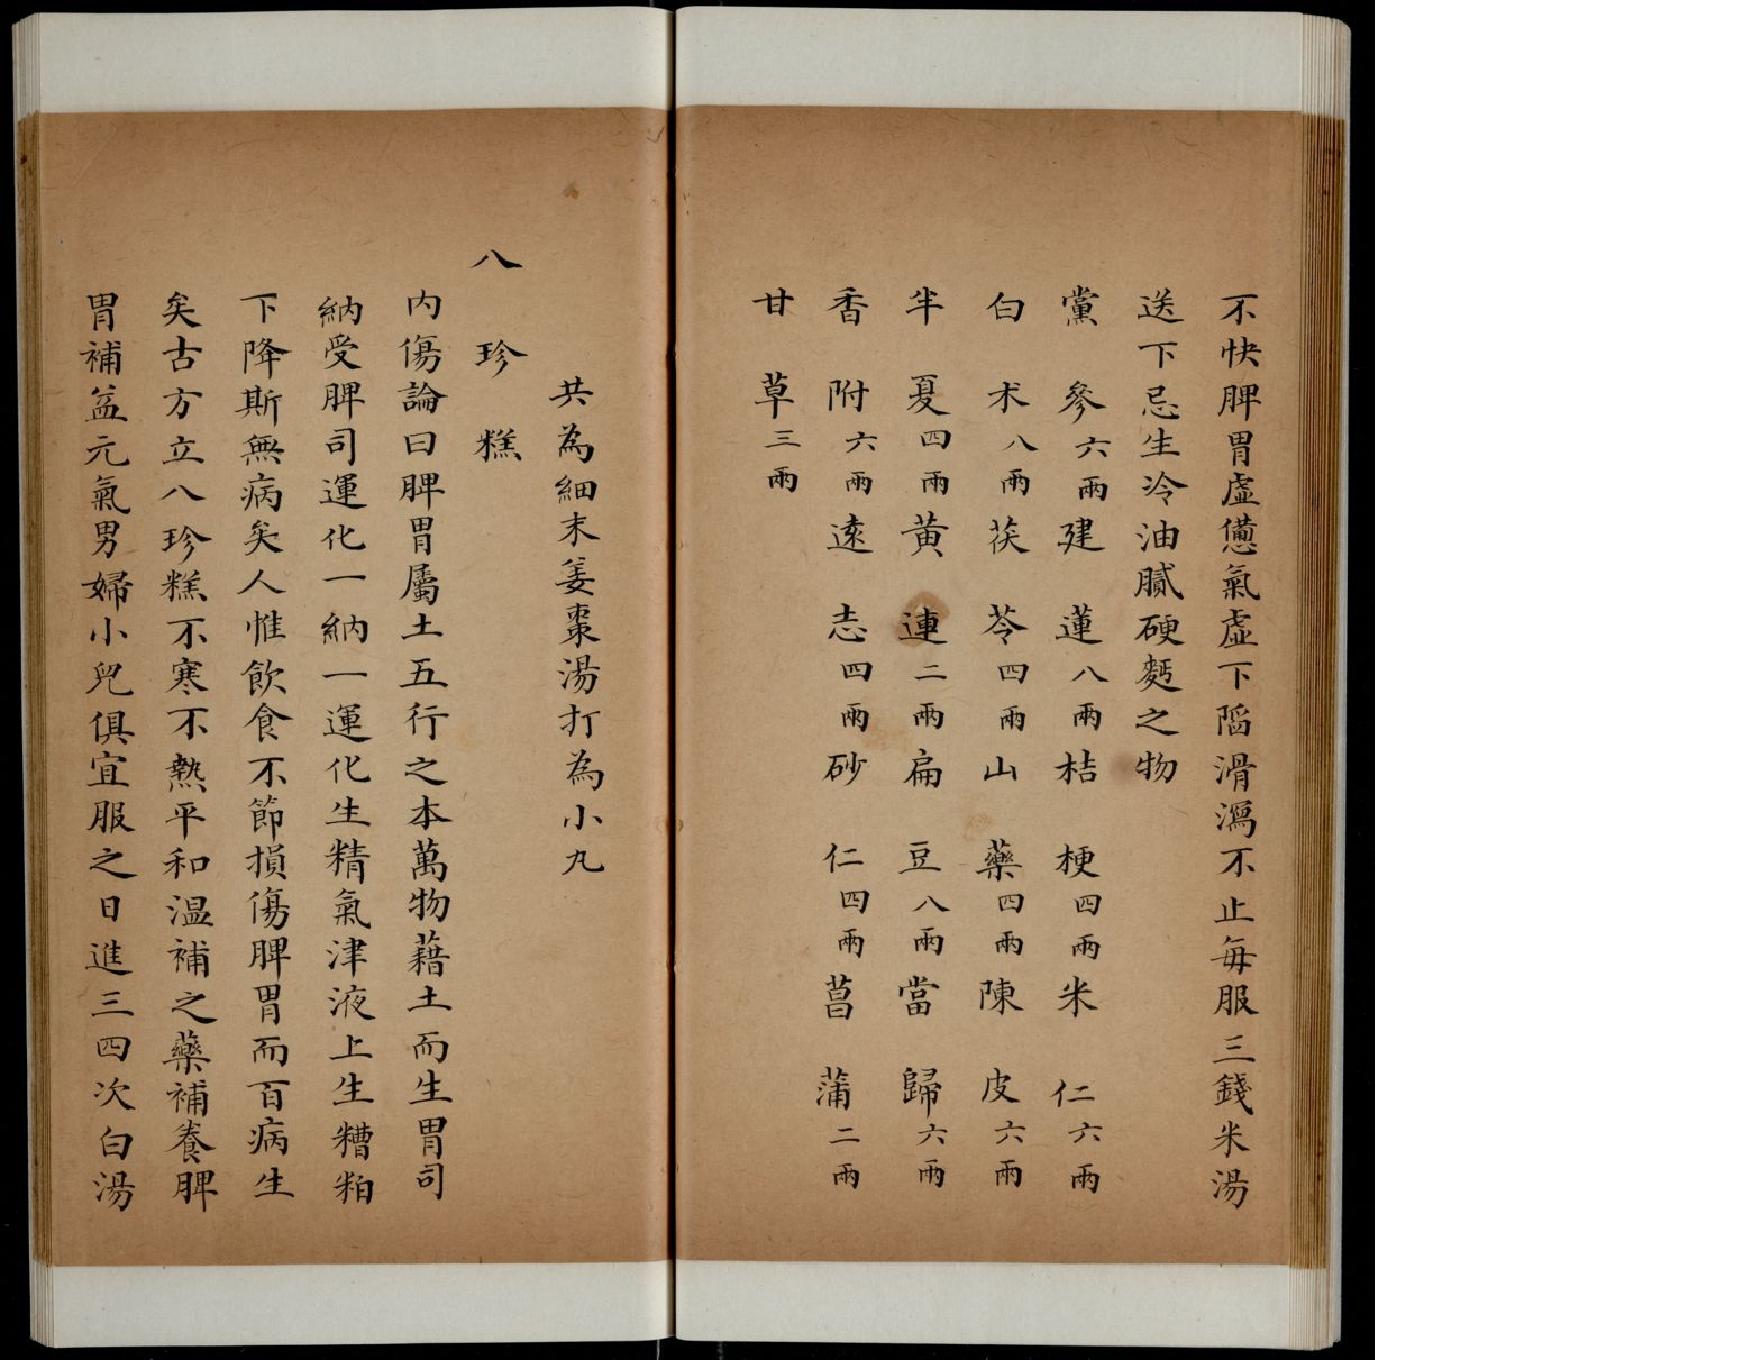 不快脾胃虛憊氣虛下陷滑瀉不止每服三錢米湯
送下忌生冷油膩硬麪之物
黨參六兩建蓮八兩桔梗四兩米仁六兩
白朮八兩茯苓四兩山藥四兩陳皮六兩
半夏四兩黃連二兩扁豆八兩當歸六兩
香附六兩遠志四兩砂仁四兩菖蒲二兩
甘草三兩
共為細末姜棗湯打為小丸
八珍糕
內傷論曰脾胃屬土五行之本萬物藉土而生胃司
納受脾司運化一納一運化生精氣津液上生糟粕
下降斯無病矣人惟飲食不節損傷脾胃而百病生
矣古方立八珍糕不寒不熱平和温補之藥補養脾
胃補益元氣男婦小兒俱宜服之日進三四次白湯